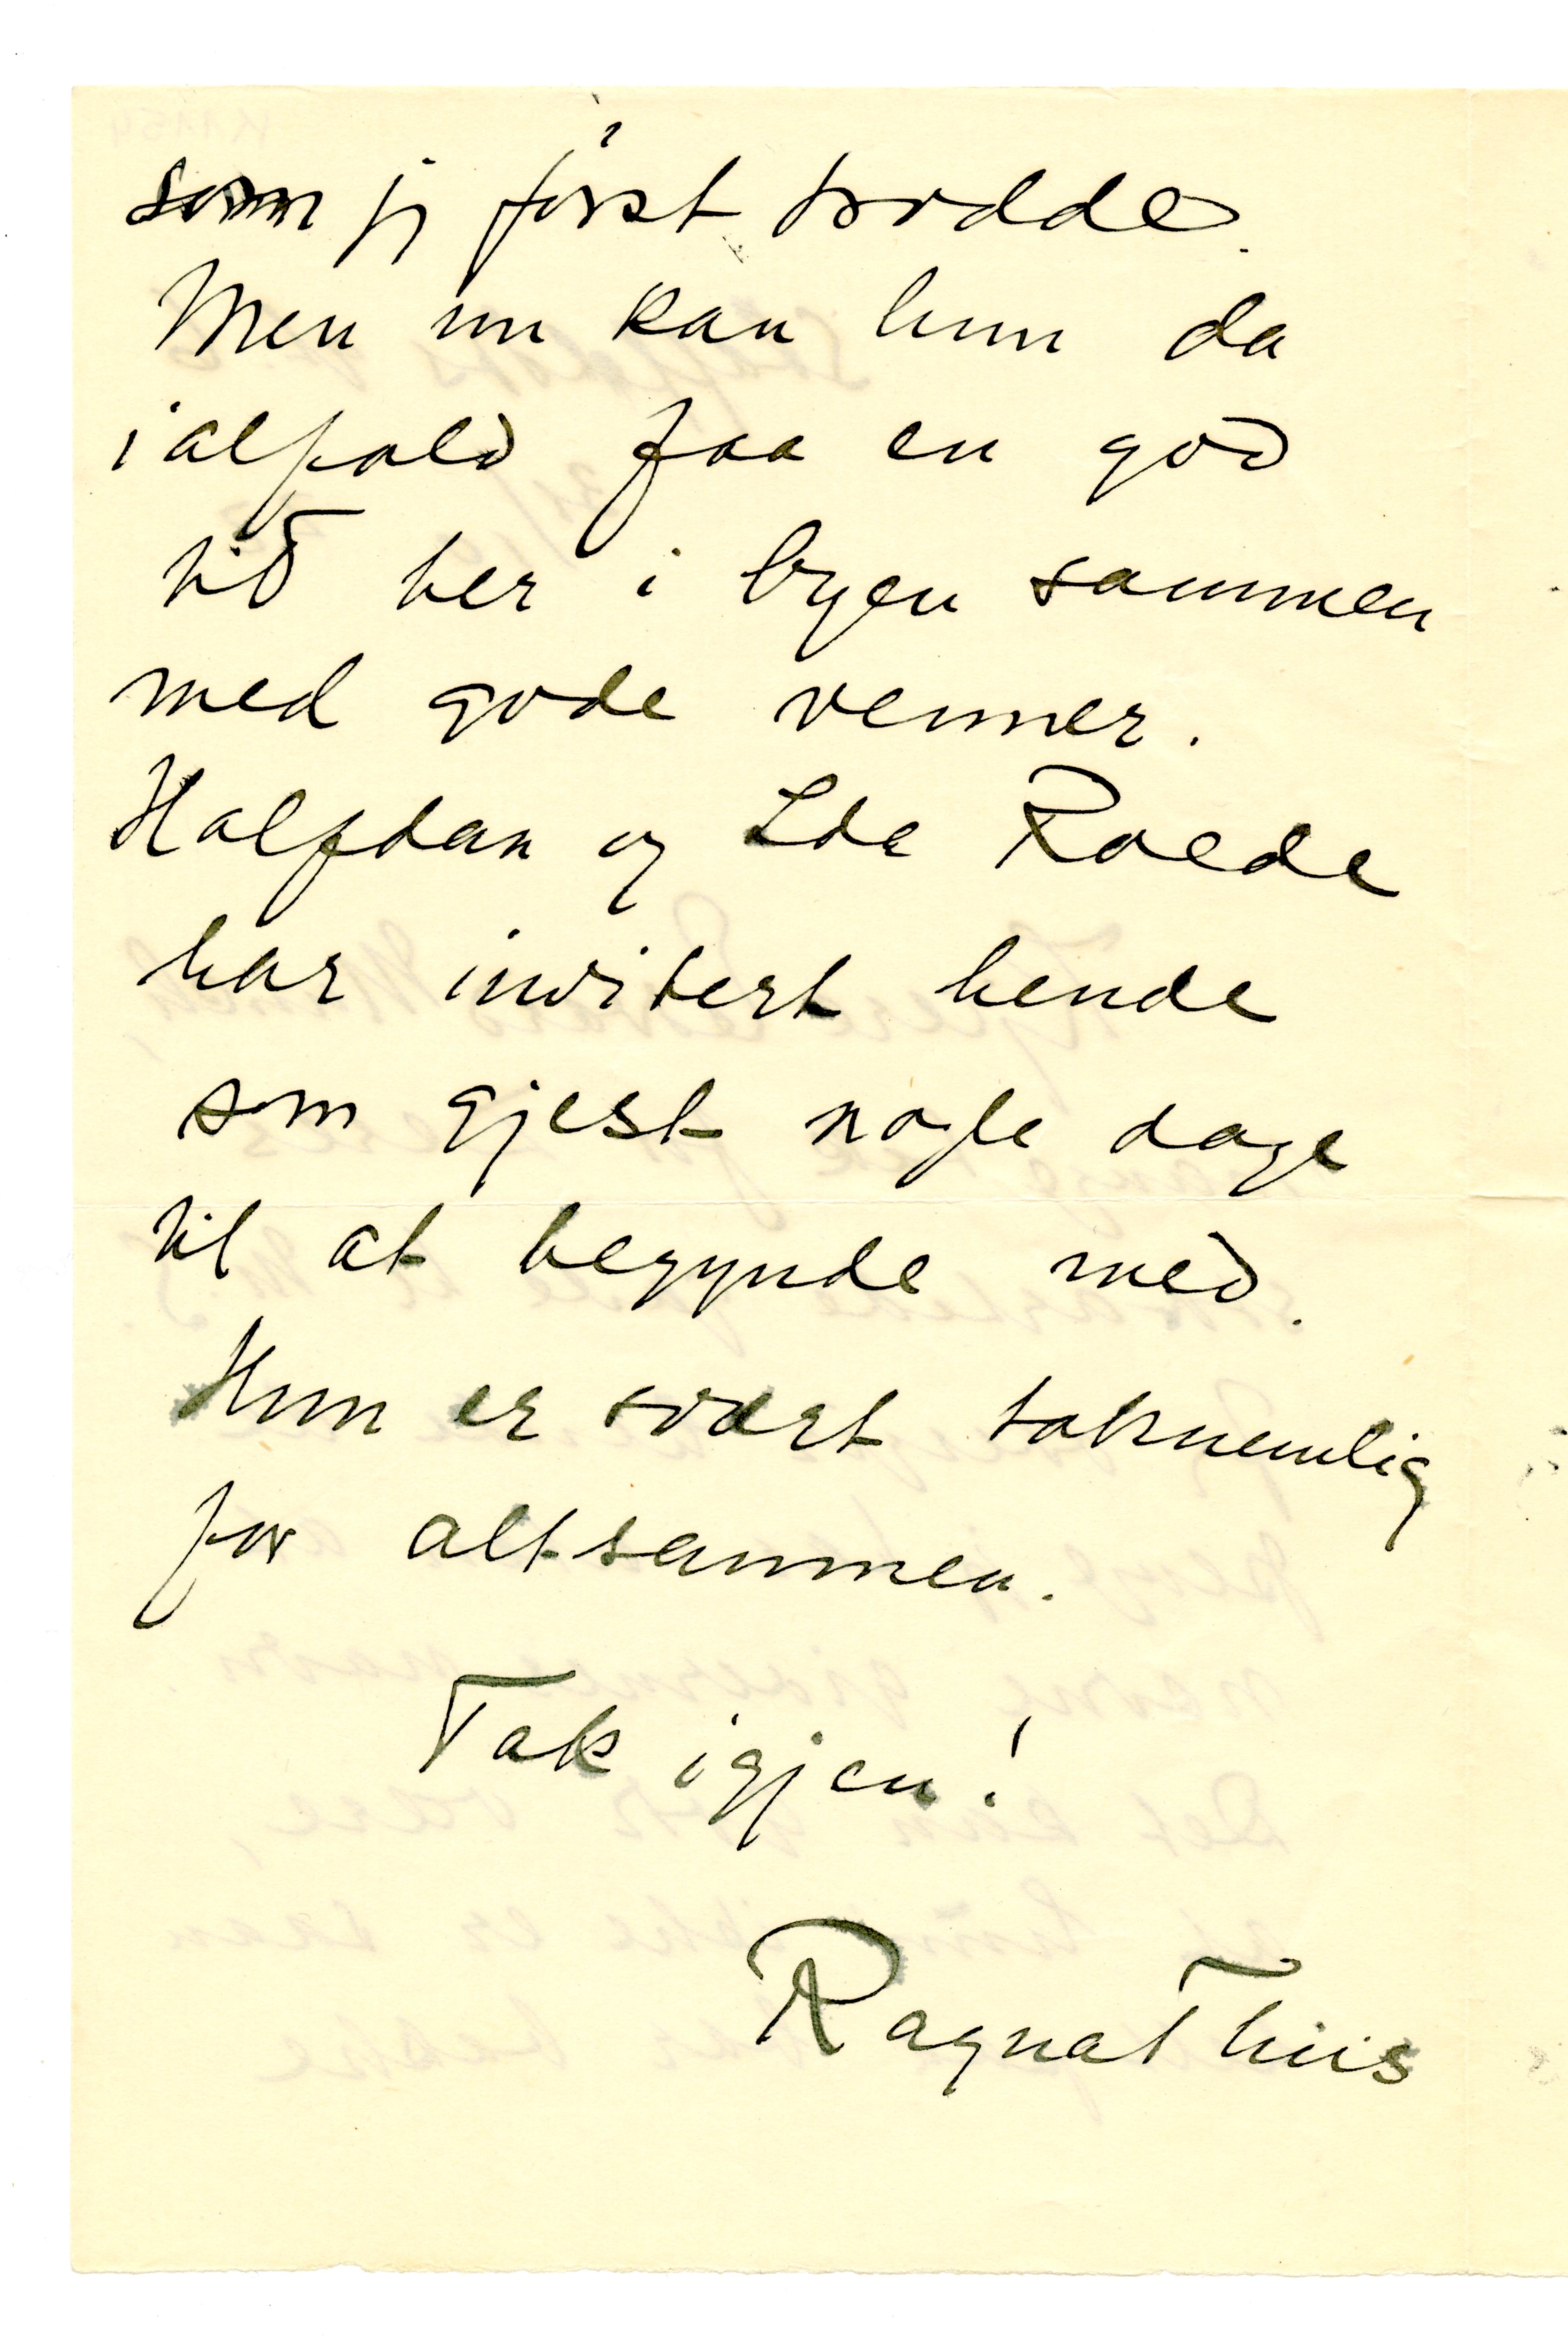 som jg først trodde.
Men nu kan hun da
ialfald faa en god
tid her i byen sammen
med gode venner.
Halfdan og Ida Roede
har invitert hende
som gjest nogle dage
til at begynde med.
Hun er svært taknemlig
for altsammen.
Tak igjen!
Ragna Thiis